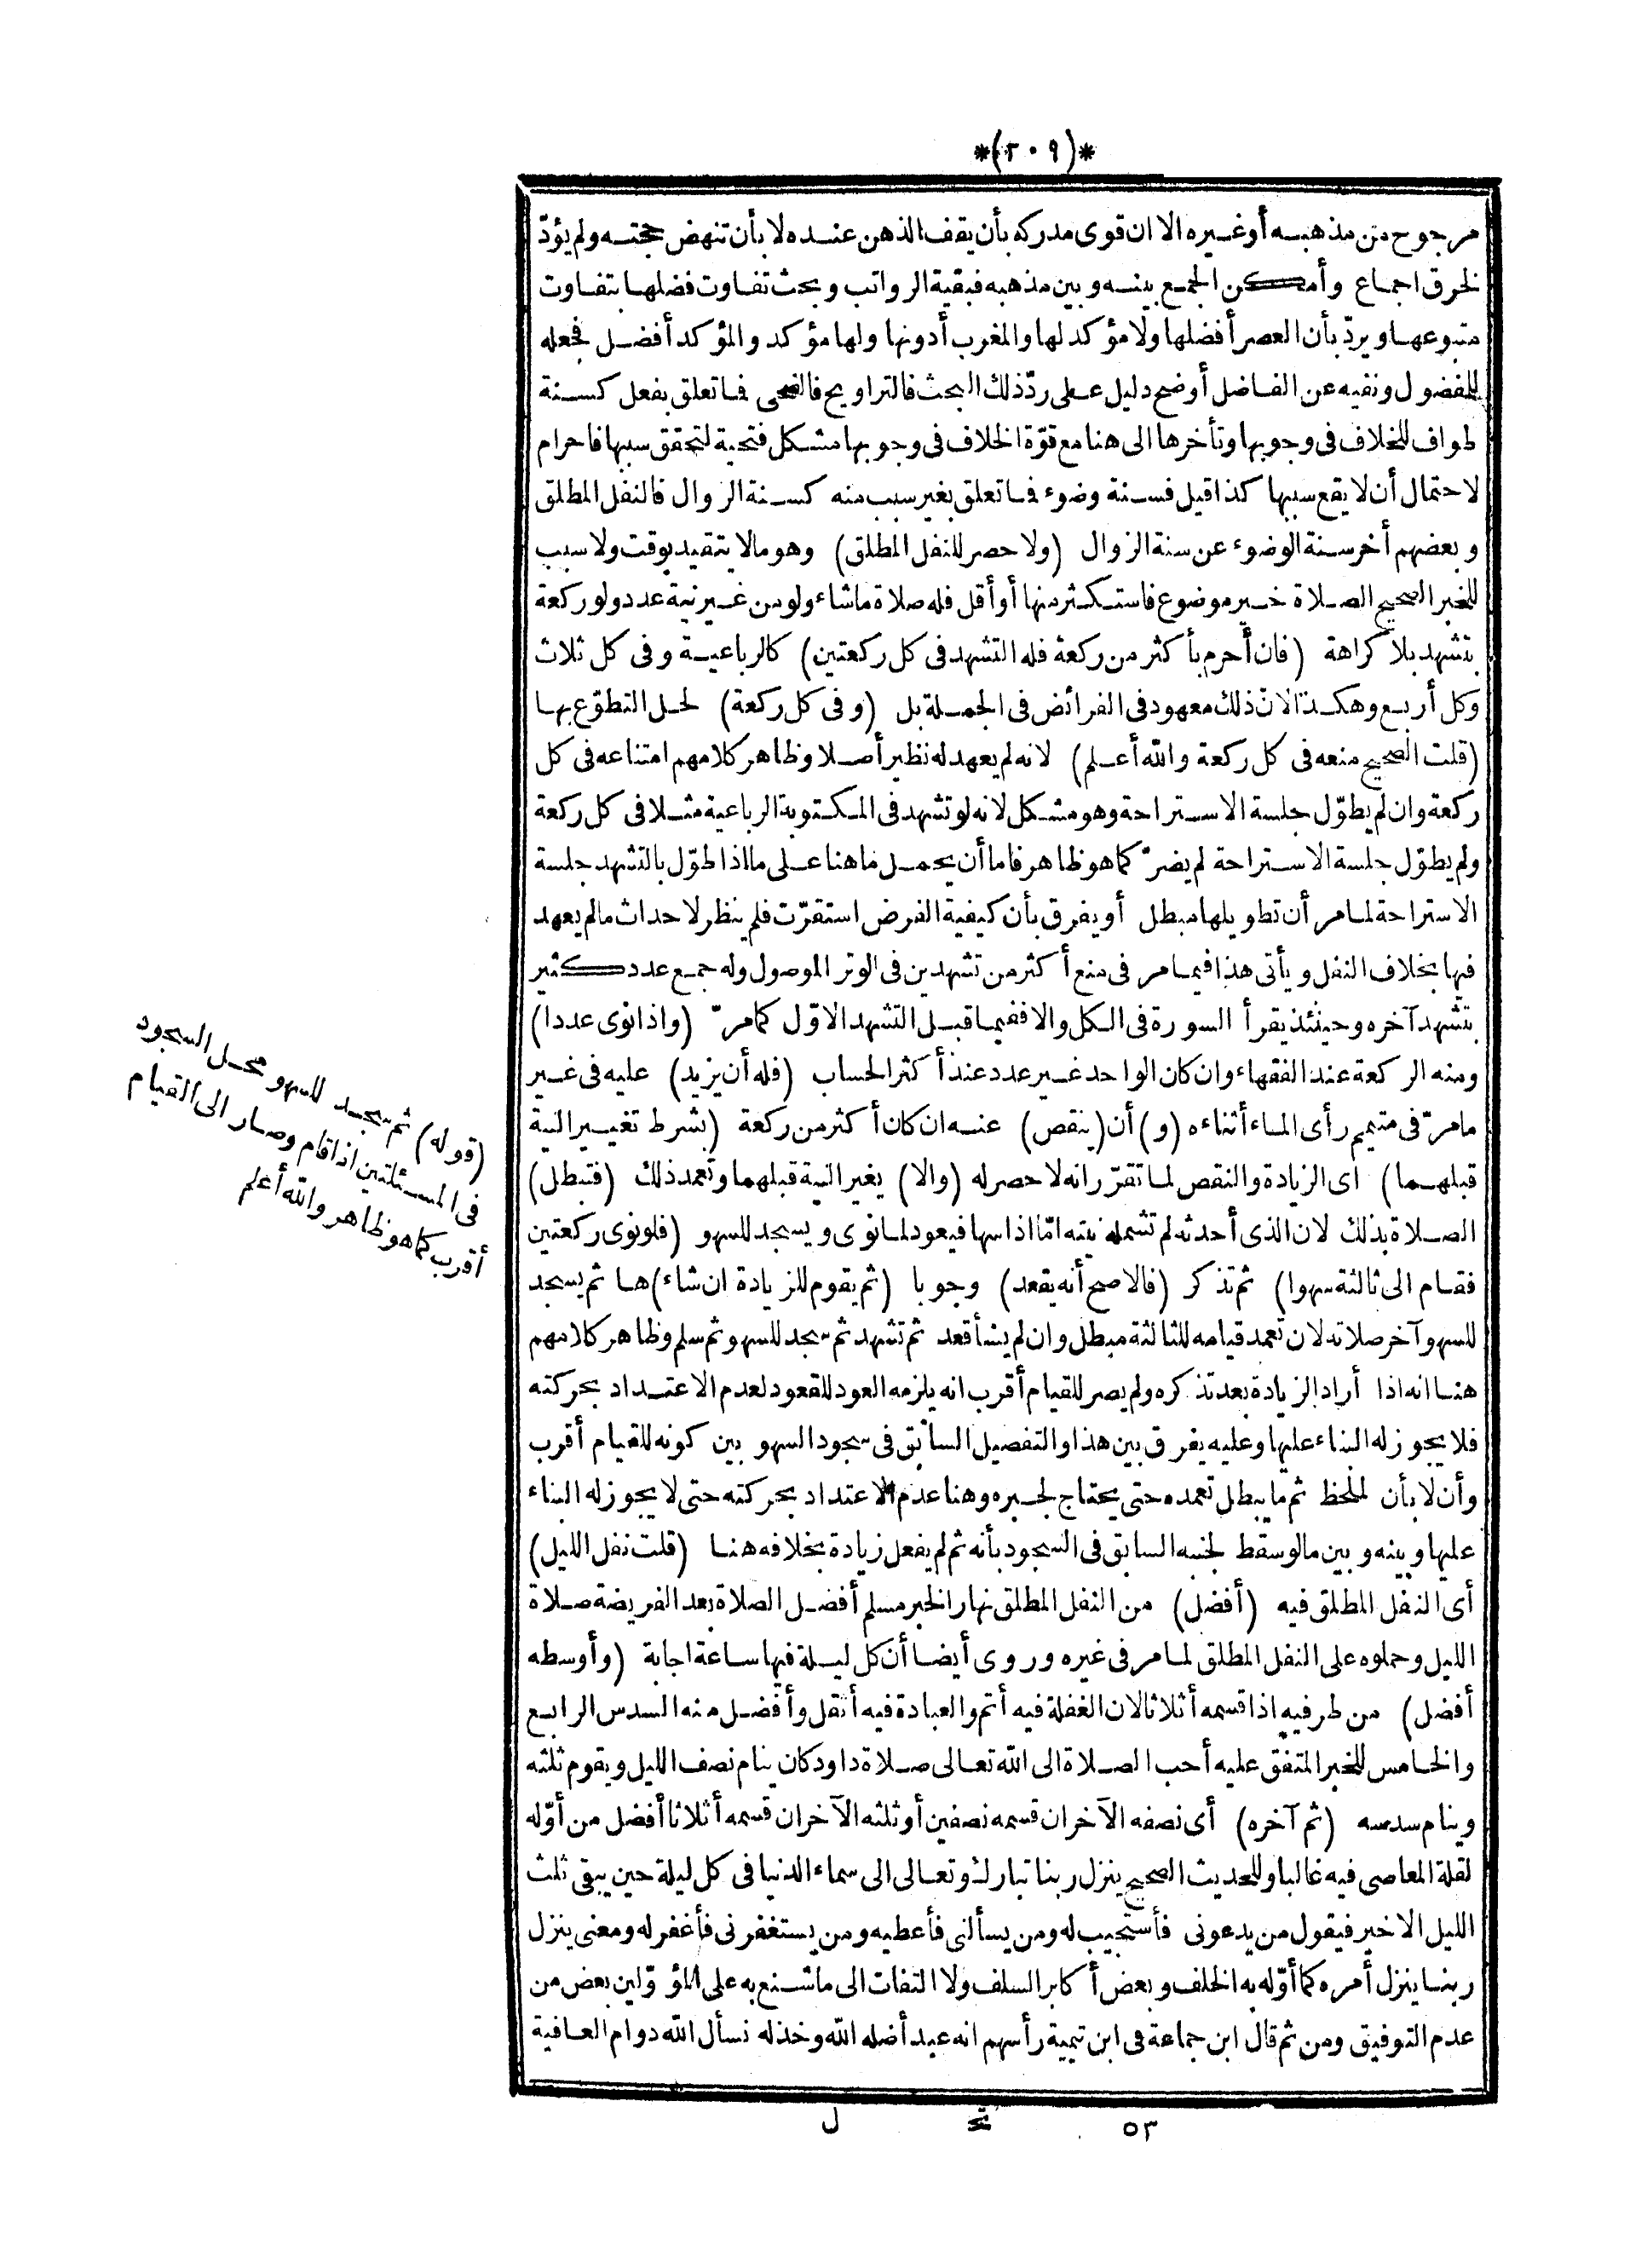 *(٢٠٩)*
مرجوح من مذهبه أو غيره الا ان قوى مدركه بأن يقف الذهن عنده لا بأن تنهض حجته ولم يؤدّ
لخرق اجماع وأمكن الجمع بينه وبين مذهبه فبقية الرواتب وبحث تفاوت فضلها بتفاوت
متبوعها ويردّ بأن العصر أفضلها ولا مؤكد لها والمغرب أدونها ولها مؤكد والمؤكد أفضل فجعله
للمفضول ونفيه عن الفاضل أوضح دليل على ردّ ذلك البحث فالتراويح فالضحى فما تعلق بفعل كسنة
طواف للخلاف فى وجوبها وتأخرها الى هنا مع قوّة الخلاف فى وجوبها مشكل فتحية لتحقق سببها فاحرام
لاحتمال أن لا يقع سببها كذا قيل فسنة وضوء فما تعلق بغير سبب منه كسنة الزوال فالنفل المطلق
وبعضهم أخر سنة الوضوء عن سنة الزوال (ولا حصر للنفل المطلق) وهو مالا يتقيد بوقت ولا سبب
للخبر الصحيح الصلاة خير موضوع فاستكثر منها أو أقل فله صلاة ما شاء ولو من غير نية عدد ولو ركعة
بتشهد بلا كراهة (فان أحرم بأكثر من ركعة فله التشهد فى كل ركعتين) كالرباعية وفى كل ثلاث
وكل أربع وهكذا لانّ ذلك معهود فى الفرائض فى الجملة بل (وفى كل ركعة) لحل التطوّع بها
(قلت الصحيح منعه فى كل ركعة والله أعلم) لانه لم يعهد له نظير أصلا وظاهر كلامهم امتناعه فى كل
ركعة وان لم يطوّل جلسة الاستراحة وهو مشكل لانه لو تشهد فى المكتوبة الرباعية مثلا فى كل ركعة
ولم يطوّل جلسة الاستراحة لم يضرّ كما هو ظاهر فاما أن يحمل ما هنا على ما اذا طوّل بالتشهد جلسة
الاستراحة لما مر أن تطويلها مبطل أو يفرق بأن كيفية الفرض استقرّت فلم ينظر لاحداث مالم يعهد
فيها بخلاف النفل ويأتى هذا فيما مر فى منع أكثر من تشهدين فى الوتر الموصول وله جمع عدد كثير
بتشهد آخره وحينئذ يقرأ السورة فى الكل والا ففيما قبل التشهد الاوّل كما مرّ (واذا نوى عددا)
ومنه الركعة عند الفقهاء وان كان الواحد غير عدد عند أكثر الحساب (فله أن يزيد) عليه فى غير
ما مرّ فى متيمم رأى الماء أثناءه (و) أن (ينقص) عنه ان كان أكثر من ركعة (بشرط تغيير النية
قبلهما) اى الزيادة والنقص لما تقرّر انه لا حصر له (والا) يغير النية قبلهما وتعمد ذلك (فتبطل)
الصلاة بذلك لان الذى أحدثه لم تشمله نيته امّا اذا سها فيعود لما نوى ويسجد للسهو (فلو نوى ركعتين
فقام الى ثالثة سهوا) ثم تذكر (فالاصح أنه يقعد) وجوبا (ثم يقوم للزيادة ان شاء) ها ثم يسجد
للسهو آخر صلاته لان تعمد قيامه للثالثة مبطل وان لم يشأ قعد ثم تشهد ثم سجد للسهو ثم سلم وظاهر كلامهم
هنا انه اذا أراد الزيادة بعد تذكره ولم يصر للقيام أقرب انه يلزمه العود للقعود لعدم الاعتداد بحركته
فلا يجوز له البناء عليها وعليه يفرق بين هذا والتفصيل السابق فى سجود السهو بين كونه للقيام أقرب
وأن لا بأن الملحظ ثم ما يبطل تعمده حتى يحتاج لجبره وهنا عدم الاعتداد بحركته حتى لا يجوز له البناء
عليها وبينه وبين مالو سقط لجنبه السابق فى السجود بأنه ثم لم يفعل زيادة بخلافه هنا (قلت نفل الليل)
أى النفل المطلق فيه (أفضل) من النفل المطلق نهارا لخبر مسلم أفضل الصلاة بعد الفريضة صلاة
الليل وحملوه على النفل المطلق لما مر فى غيره وروى أيضا أن كل ليلة فيها ساعة اجابة (وأوسطه
أفضل) من طرفيه اذا قسمه أثلاثا لان الغفلة فيه أتم والعبادة فيه أثقل وأفضل منه السدس الرابع
والخامس للخبر المتفق عليه أحب الصلاة الى الله تعالى صلاة داود كان ينام نصف الليل ويقوم ثلثه
وينام سدسه (ثم آخره) أى نصفه الآخر ان قسمه نصفين أو ثلثه الآخر ان قسمه أثلاثا أفضل من أوّله
لقلة المعاصى فيه غالبا وللحديث الصحيح ينزل ربنا تبارك وتعالى الى سماء الدنيا فى كل ليلة حين يبقى ثلث
الليل الاخير فيقول من يدعونى فأستجيب له ومن يسألنى فأعطيه ومن يستغفرنى فأغفر له ومعنى ينزل
ربنا ينزل أمره كما أوّله به الخلف وبعض أكابر السلف ولا التفات الى ما شنع به على المؤوّلين بعض من
عدم التوفيق ومن ثم قال ابن جماعة فى ابن تيمية رأسهم انه عبد أضله الله وخذله نسأل الله دوام العافية
(قوله) ثم سجد للسهو محل السجود
فى المسئلتين اذا قام وصار الى القيام
أقرب كما هو ظاهر والله أعلم
٥٣ تح ل